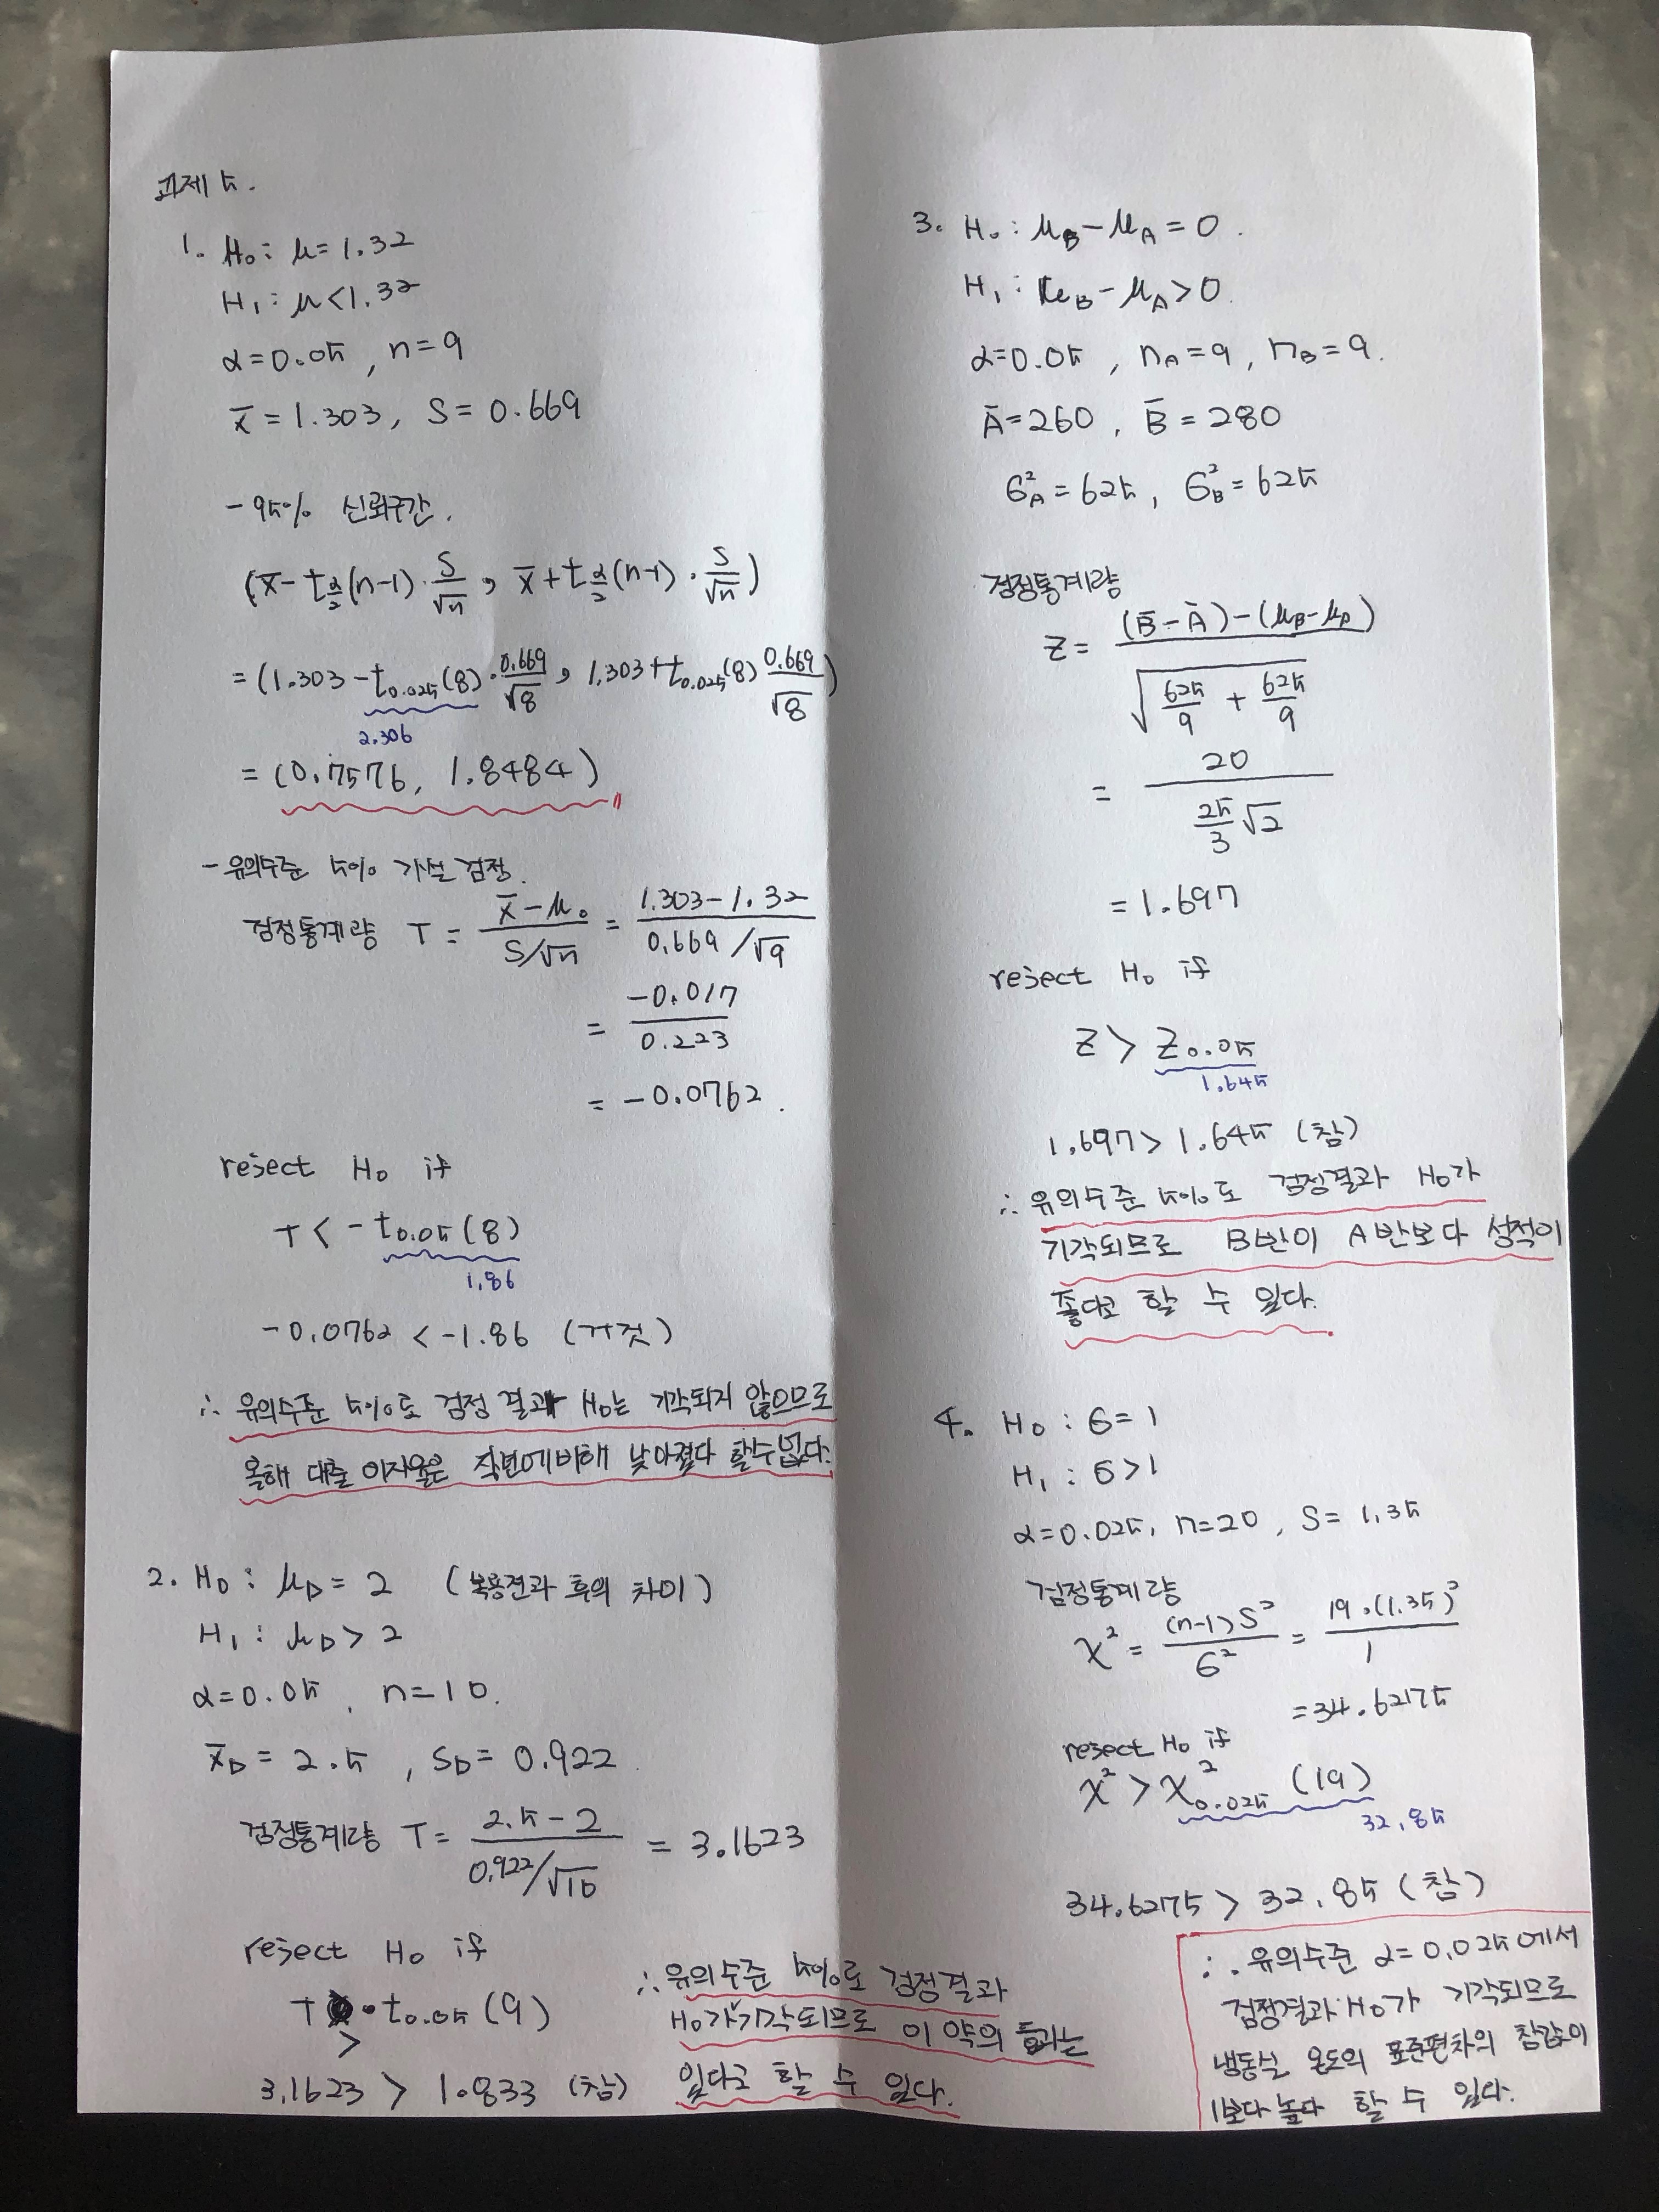 과제 5.
1. H₀ : μ = 1.32
H₁ : μ < 1.32
α = 0.05 , n = 9
x̄ = 1.303, S = 0.669
- 95% 신뢰구간.
(x̄ - t_{α/2}(n-1) · S/√n , x̄ + t_{α/2}(n-1) · S/√n)
= (1.303 - t_{0.025}(8) · 0.669/√8 , 1.303 + t_{0.025}(8) 0.669/√8)
2.306
= (0.7576, 1.8484)
- 유의수준 5% 가설 검정.
검정통계량 T = (x̄ - μ₀)/(S/√n) = (1.303 - 1.32)/(0.669/√9)
= -0.017/0.223
= -0.0762.
reject H₀ if
T < -t_{0.05}(8)
1.86
-0.0762 < -1.86 (거짓)
∴ 유의수준 5%로 검정 결과 H₀는 기각되지 않으므로
올해 대출 이자율은 작년에 비해 낮아졌다 할수 없다.
2. H₀ : μ_D = 2 (복용전과 후의 차이)
H₁ : μ_D > 2
α = 0.05, n = 10.
x̄_D = 2.5 , S_D = 0.922
검정통계량 T = (2.5 - 2)/(0.922/√10) = 3.1623
reject H₀ if
T > t_{0.05}(9)
3.1623 > 1.833 (참)
∴ 유의수준 5%로 검정결과
H₀가 기각되므로 이 약의 효과는
있다고 할 수 있다.
3. H₀ : μ_B - μ_A = 0.
H₁ : μ_B - μ_A > 0.
α = 0.05 , n_A = 9, n_B = 9.
Ā = 260 , B̄ = 280
σ²_A = 625, σ²_B = 625
검정통계량
Z = ((B̄ - Ā) - (μ_B - μ_A))/√(625/9 + 625/9)
= 20/((25/3)√2)
= 1.697
reject H₀ if
Z > Z_{0.05}
1.645
1.697 > 1.645 (참)
∴ 유의수준 5%로 검정결과 H₀가
기각되므로 B반이 A반보다 성적이
좋다고 할 수 있다.
4. H₀ : σ = 1
H₁ : σ > 1
α = 0.025, n = 20 , S = 1.35
검정통계량
χ² = (n-1)S²/σ² = 19·(1.35)²/1
= 34.6275
reject H₀ if
χ² > χ²_{0.025} (19)
32.85
34.6275 > 32.85 (참)
∴ 유의수준 α = 0.025에서
검정결과 H₀가 기각되므로
냉동실 온도의 표준편차의 참값이
1보다 높다 할 수 있다.